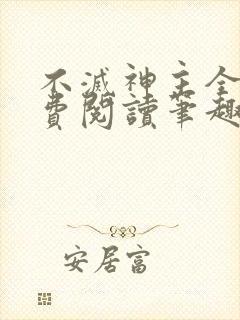 不滅神主全
費閱讀筆趣
安居富